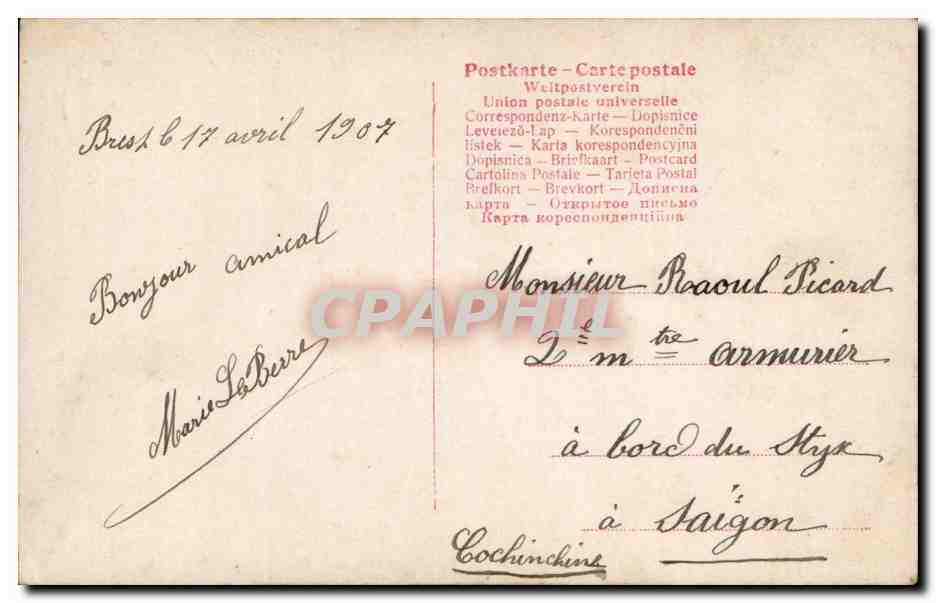 Brest le 17 avril 1907
Bonjour amical
Marie Le Berre
Postkarte – Carte postale
Weltpostverein
Union postale universelle
Correspondenz-Karte — Dopisnice
Levelező-Lap — Korespondenčni
listek — Karta korespondencyjna
Dopisnica — Briefkaart — Postcard
Cartolina Postale — Tarjeta Postal
Brefkort — Brevkort — Дописна
карта — Открытое письмо
Карта кореспонденційна
Monsieur Raoul Picard
2e mtre armurier
à bord du Styx
à Saïgon
Cochinchine
CPAPHIL